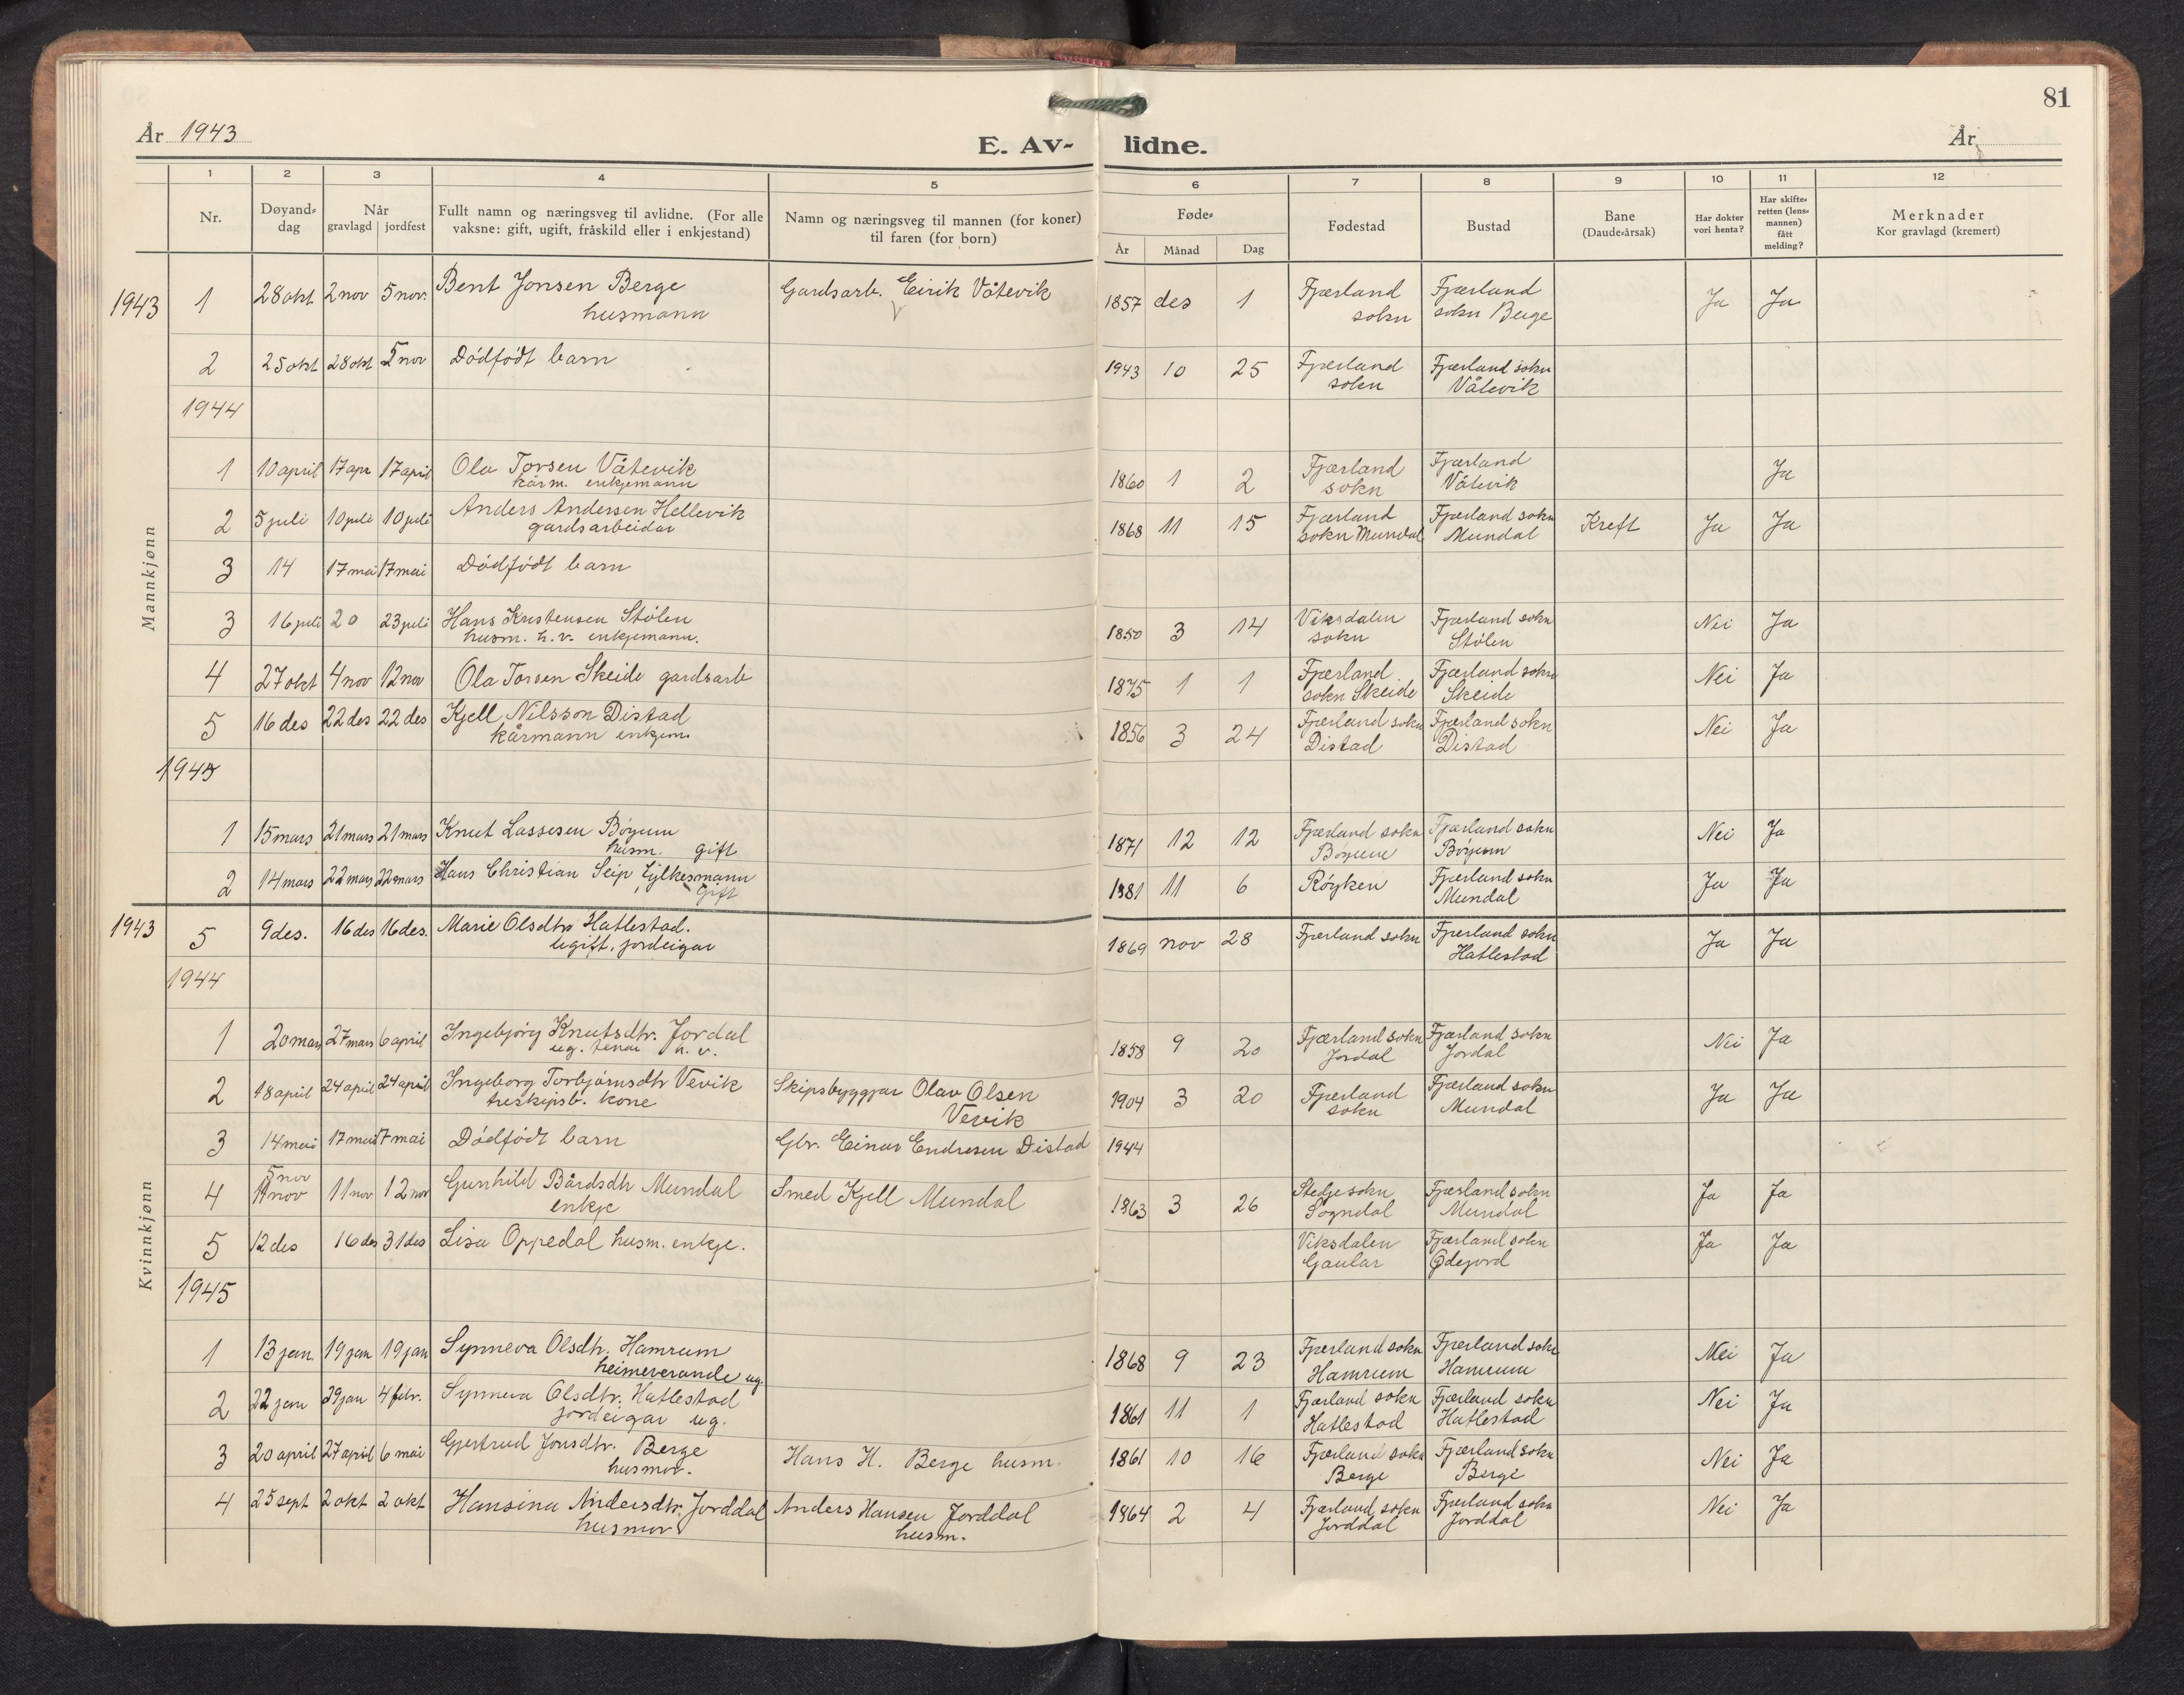 81
År 1943
E. Av-lidne.
År
1 2 3 4 5 6 7 8 9 10 11 12
Nr.
Døyand-dag
Når
gravlagd jordfest
Fullt namn og næringsveg til avlidne. (For alle vaksne: gift, ugift, fråskild eller i enkjestand)
Namn og næringsveg til mannen (for koner) til faren (for born)
Føde-
År Månad Dag
Fødestad
Bustad
Bane (Daude-årsak)
Har dokter vori henta?
Har skifte-retten (lens-mannen) fått melding?
Merknader
Kor gravlagd (kremert)
Mannkjønn
1943 1 28 okt 2 nov 5 nov. Bent Jonsen Berge husmann Gardsarb. Eirik Våtevik 1857 des 1 Fjærland sokn Fjærland sokn Berge Ja Ja
2 25 okt 28 okt 5 nov Dødfødt barn 1943 10 25 Fjærland sokn Fjærland sokn Våtevik
1944
1 10 april 17 apr 17 april Ola Torsen Våtevik kårm. enkjemann 1860 1 2 Fjærland sokn Fjærland Våtevik Ja
2 5 juli 10 juli 10 juli Anders Andersen Hellevik gardsarbeidar 1868 11 15 Fjærland sokn Mundal Fjærland sokn Mundal Kreft Ja Ja
3 14 17 mai 17 mai Dødfødt barn
3 16 juli 20 23 juli Hans Kristensen Stølen husm. h.v. enkjemann. 1850 3 14 Viksdalen sokn Fjærland sokn Stølen Nei Ja
4 27 okt 4 nov 12 nov Ola Torsen Skeide gardsarb 1875 1 1 Fjærland sokn Skeide Fjærland sokn Skeide Nei Ja
5 16 des 22 des 22 des Kjell Nilsson Distad kårmann enkjem. 1856 3 24 Fjærland sokn Distad Fjærland sokn Distad Nei Ja
1945
1 15 mars 21 mars 21 mars Knut Lassesen Bøyum husm. gift 1871 12 12 Fjærland sokn Bøyum Fjærland sokn Bøyum Nei Ja
2 14 mars 22 mars 22 mars Hans Christian Seip fylkesmann gift 1881 11 6 Røyken Fjærland sokn Mundal Ja Ja
Kvinnkjønn
1943 5 9 des. 16 des 16 des. Marie Olsdtr Hatlestad. ugift, jordeigar 1869 nov 28 Fjærland sokn Fjærland sokn Hatlestad Ja Ja
1944
1 20 mars 27 mars 6 april Ingebjørg Knutsdtr. Jordal ug. tenar h.v. 1858 9 20 Fjærland sokn Jordal Fjærland sokn Jordal Nei Ja
2 18 april 24 april 24 april Ingeborg Torbjørnsdtr Vevik treskipsb. kone Skipsbyggjar Olav Olsen Vevik 1904 3 20 Fjærland sokn Fjærland sokn Mundal Ja Ja
3 14 mai 17 mai 17 mai Dødfødt barn Gbr. Einar Endresen Distad 1944
4 5 nov 11 nov 11 nov 12 nov Gunhild Bårdsdtr Mundal enkje Smed Kjell Mundal 1863 3 26 Stedje sokn Sogndal Fjærland sokn Mundal Ja Ja
5 12 des 16 des 31 des Lisa Oppedal husm. enkje. Viksdalen Gaular Fjærland sokn Ødejord Ja Ja
1945
1 13 jan. 19 jan 19 jan Synneva Olsdtr. Hamrum heimeverande ug. 1868 9 23 Fjærland sokn Hamrum Fjærland sokn Hamrum Nei Ja
2 22 jan 29 jan 4 febr. Synneva Olsdtr. Hatlestad jordeigar ug. 1861 11 1 Fjærland sokn Hatlestad Fjærland sokn Hatlestad Nei Ja
3 20 april 27 april 6 mai Gjertrud Jonsdtr. Berge husmor. Hans H. Berge husm. 1861 10 16 Fjærland sokn Berge Fjærland sokn Berge Nei Ja
4 25 sept 2 okt 2 okt Hansina Andersdtr. Jorddal husmor Anders Hansen Jorddal husm. 1864 2 4 Fjærland sokn Jorddal Fjærland sokn Jorddal Nei Ja